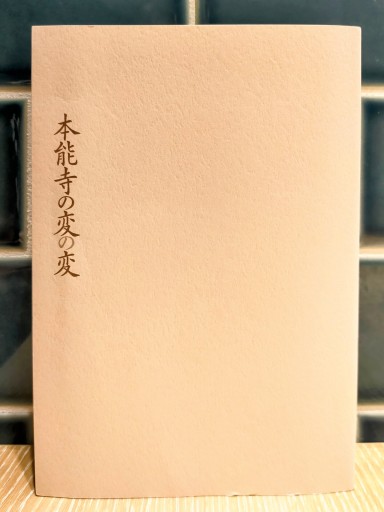 本能寺の変の変